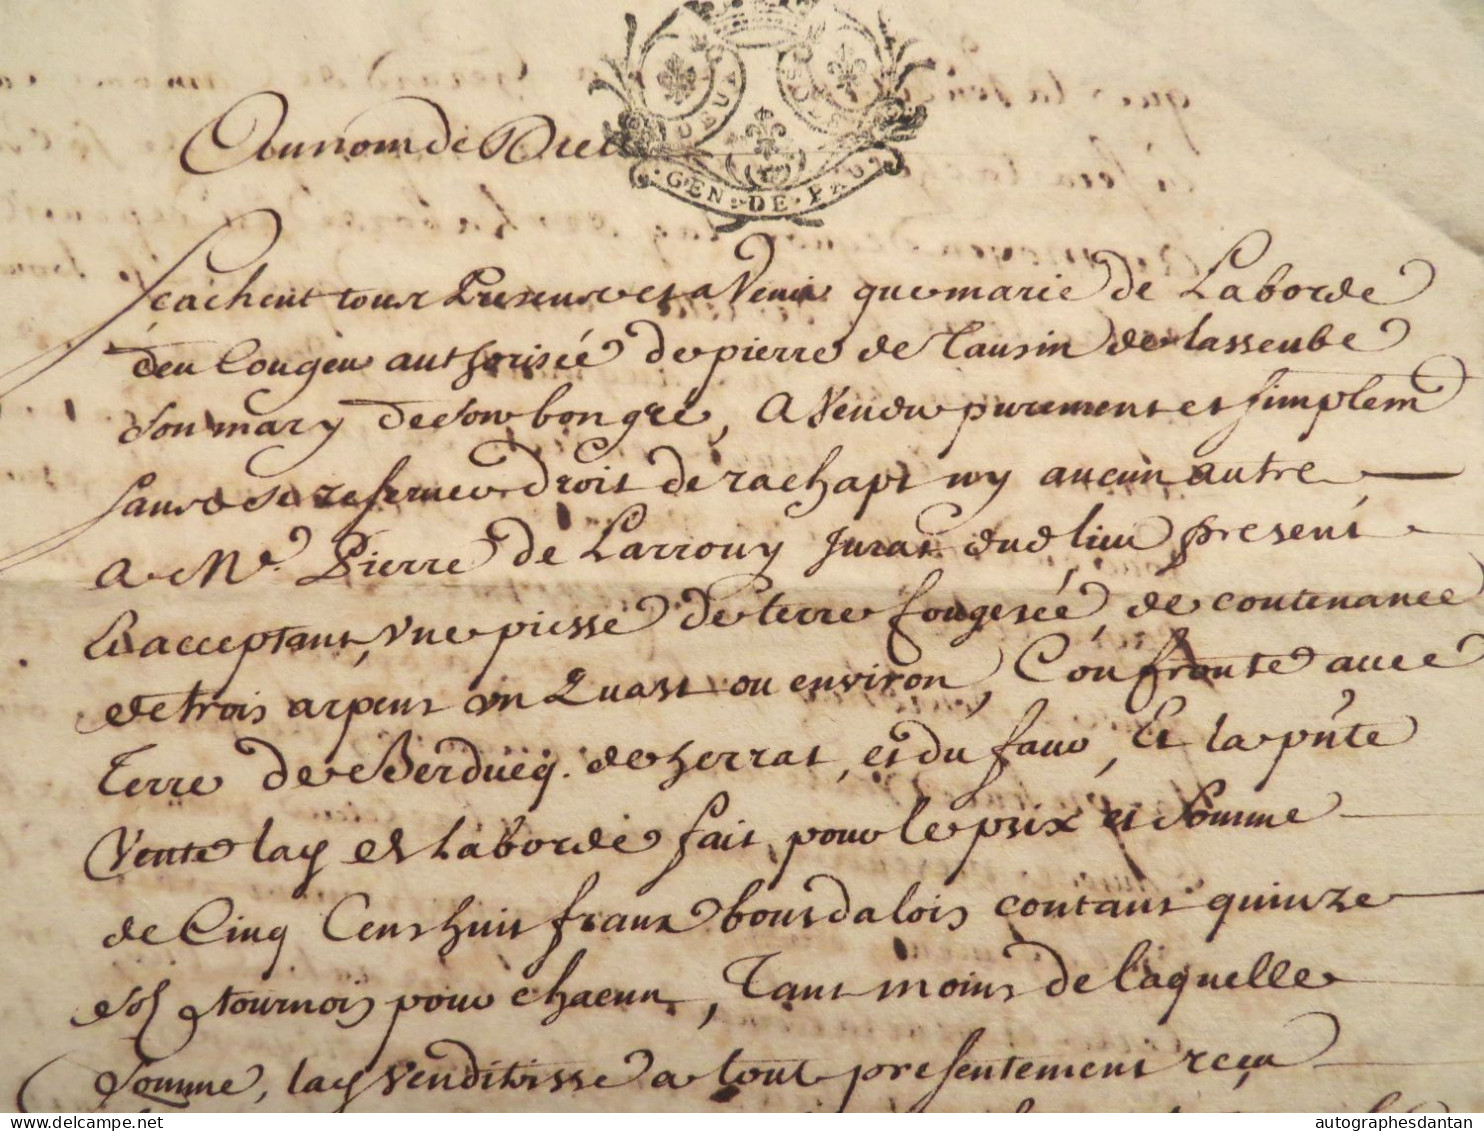 Au nom de Dieu
GEN · DE · PAU
Scachent tous presens et a Venir que marie de Laborde
d'eu Cougeu authorisée de pierre de Tausin de lasseube
son mary de son bon gré, A Vendu purement et simplem
sans se reserver droit de rachapt ny aucun autre
A Me. Pierre de Larrouy Jurat dud lieu present
Et acceptant, vne piesse de terre fougerée, de contenance
de trois arpens un Quart ou environ, Confronte avec
terre de Berducq. de herrat, et du faur, Et la pnte
Vente lad de Laborde fait pour le prix et somme
de Cinq Cens huit franx bourdalois contant quinze
sols tournois pour chacun, Tant moins de laquelle
somme, lad venditrisse a tout presentement reçu
autographesdantan